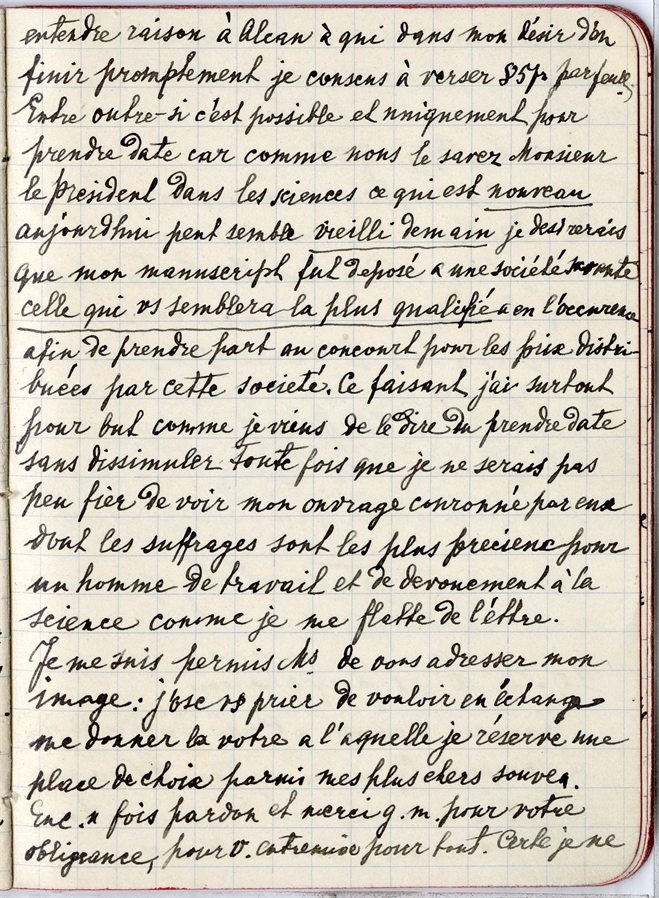 entendre raison à Alcan à qui dans mon désir d'en
finir promptement je consens à verser 85f par feuille
Entre outre-si c'est possible et uniquement pour
prendre date car comme nous le savez Monsieur
le président dans les sciences ce qui est nouveau
aujourdhui peut semble vieilli demain je desirerais
que mon manuscript fut deposé a une société savante
celle qui vs semblera la plus qualifié a en l'occurence
afin de prendre part au concourt pour les prix distri-
buées par cette societé. Ce faisant j'ai surtout
pour but comme je viens de le dire du prendre date
sans dissimuler toute fois que je ne serais pas
peu fier de voir mon ouvrage couronné par eux
dont les suffrages sont les plus precieux pour
un homme de travail et de devouement à la
science comme je me flatte de l'éttre.
Je me suis permis Ms de vous adresser mon
image: j'ose vs prier de vouloir en échange
me donner la votre a l'aquelle je réserve une
place de choix parmi mes plus chers souve.
Enc. n fois pardon et merci g. m. pour votre
obligeance, pour v. entremise pour tout. Certe je ne